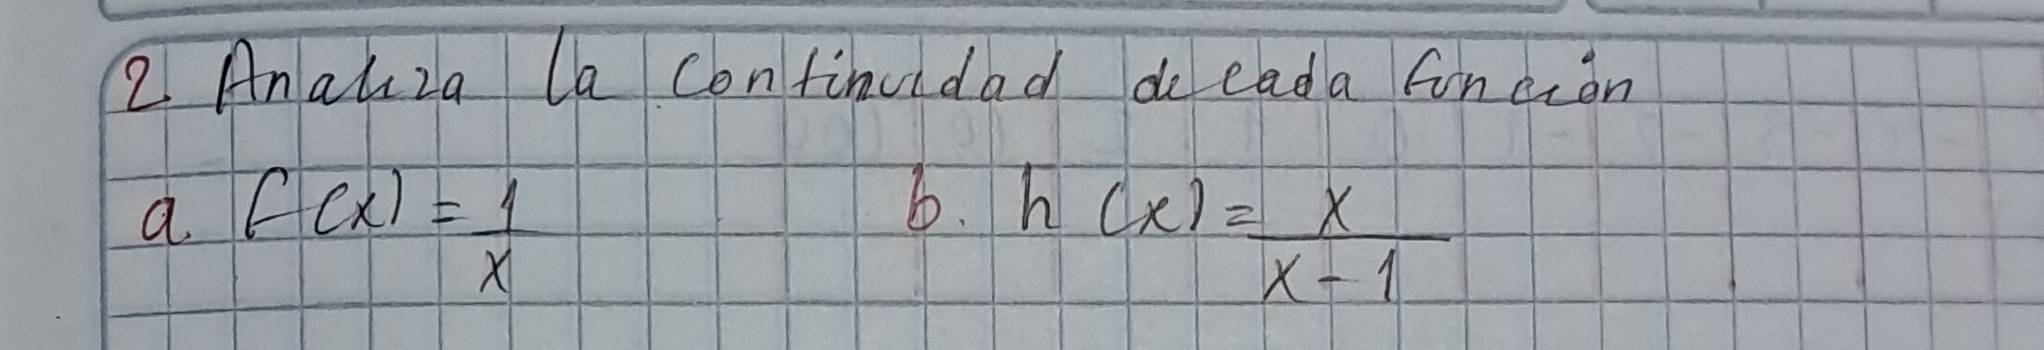 2. Analiza la continuidad de cada función
a. f(x) = 1/x b. h(x) = x/(x-1)